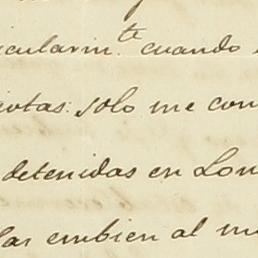 icularm.te cuando
iotas: solo me con
detenidas en Lon
las embien al m